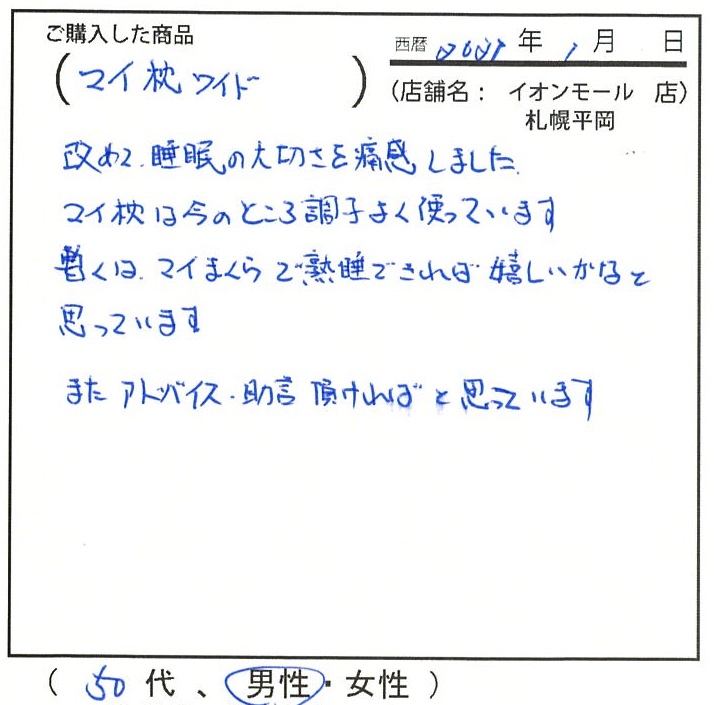 ご購入した商品
西暦 2021 年 1 月 日
(マイ枕ワイド)
(店舗名: イオンモール 店)
札幌平岡
改めて、睡眠の大切さを痛感しました。
マイ枕は今のところ調子よく使っています
暫くは、マイまくらで熟睡できれば嬉しいかなと
思っています
また アドバイス・助言 頂ければと思っています
( 50 代 、 男性・女性 )